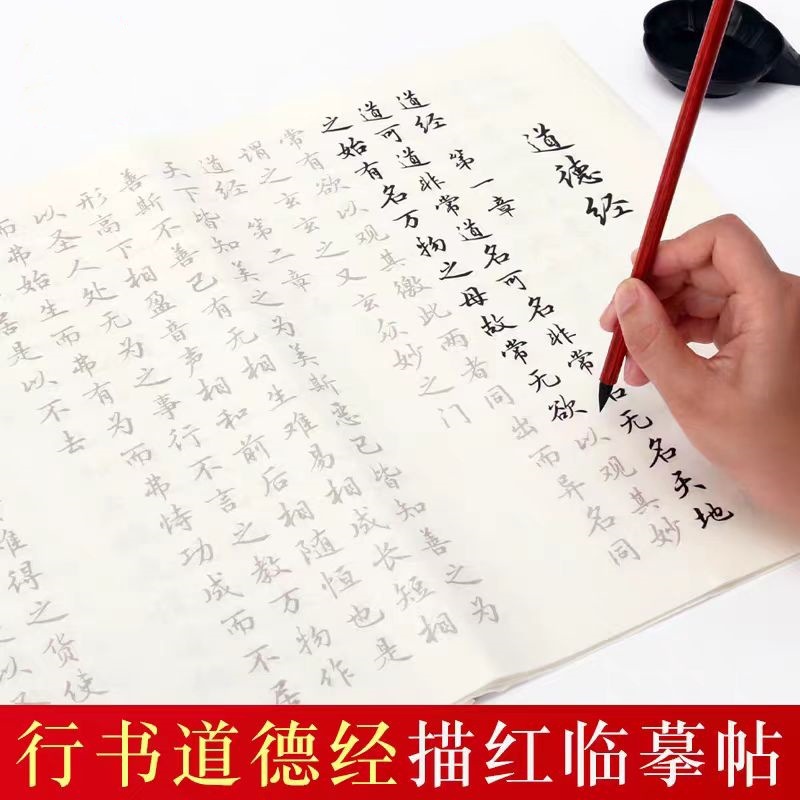 道德经
道经 第一章
道可道非常道名可名非常名无名天地
之始有名万物之母故常无欲以观其妙
常有欲以观其徼此两者同出而异名同
谓之玄玄之又玄众妙之门
道经 第二章
天下皆知美之为美斯恶已皆知善之为
善斯不善已有无相生难易相成长短相
形高下相盈音声相和前后相随恒也是
以圣人处无为之事行不言之教万物作
而弗始生而弗有为而弗恃功成而不居
居是以不去
难得之货使
行书道德经描红临摹帖